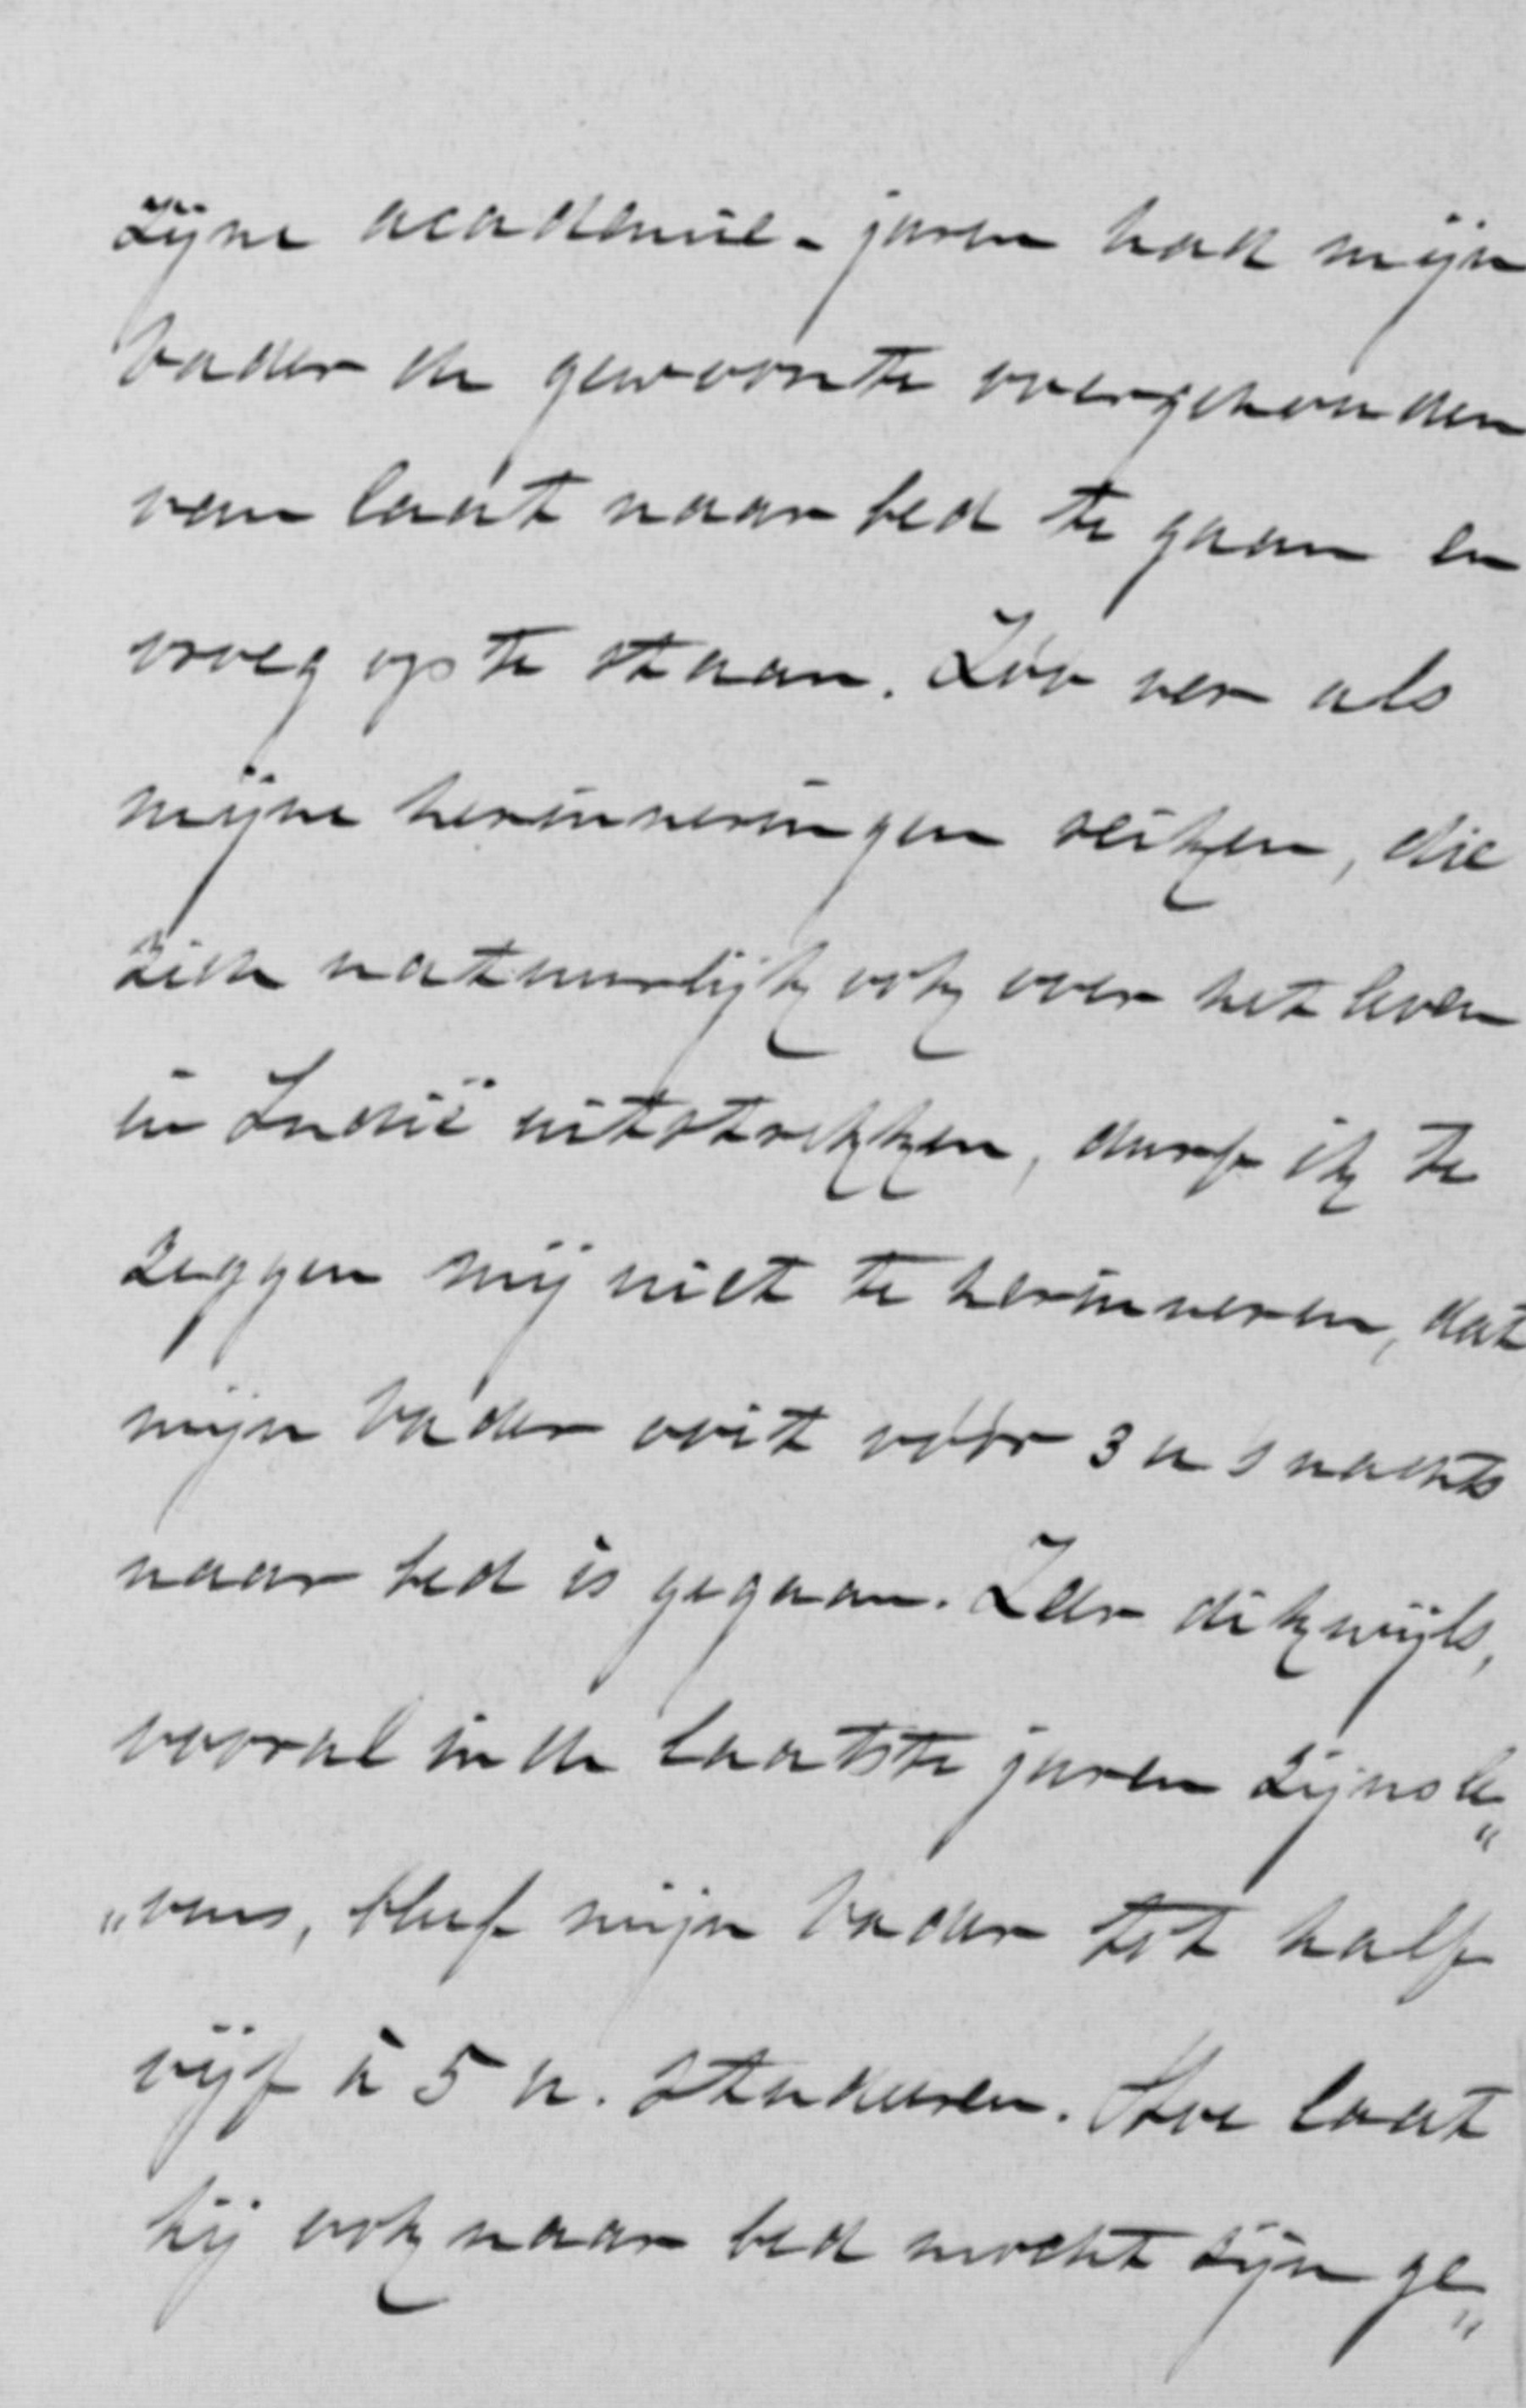 zijne academie-jaren had mijn
Vader de gewoonte overgehouden
van laat naar bed te gaan en
vroeg op te staan. Zóó ver als
mijne herinneringen reiken, die
zich natuurlijk ook over het leven
in Indië uitstrekken, durf ik te
zeggen mij niet te herinneren, dat
mijn Vader ooit vóór 3 u 's nachts
naar bed is gegaan. Zeer dikwijls,
vooral in de laatste jaren zijns le„
„vens, bleef mijn Vader tot half
vijf à 5 u. studeeren. Hoe laat
hij ook naar bed mocht zijn ge„